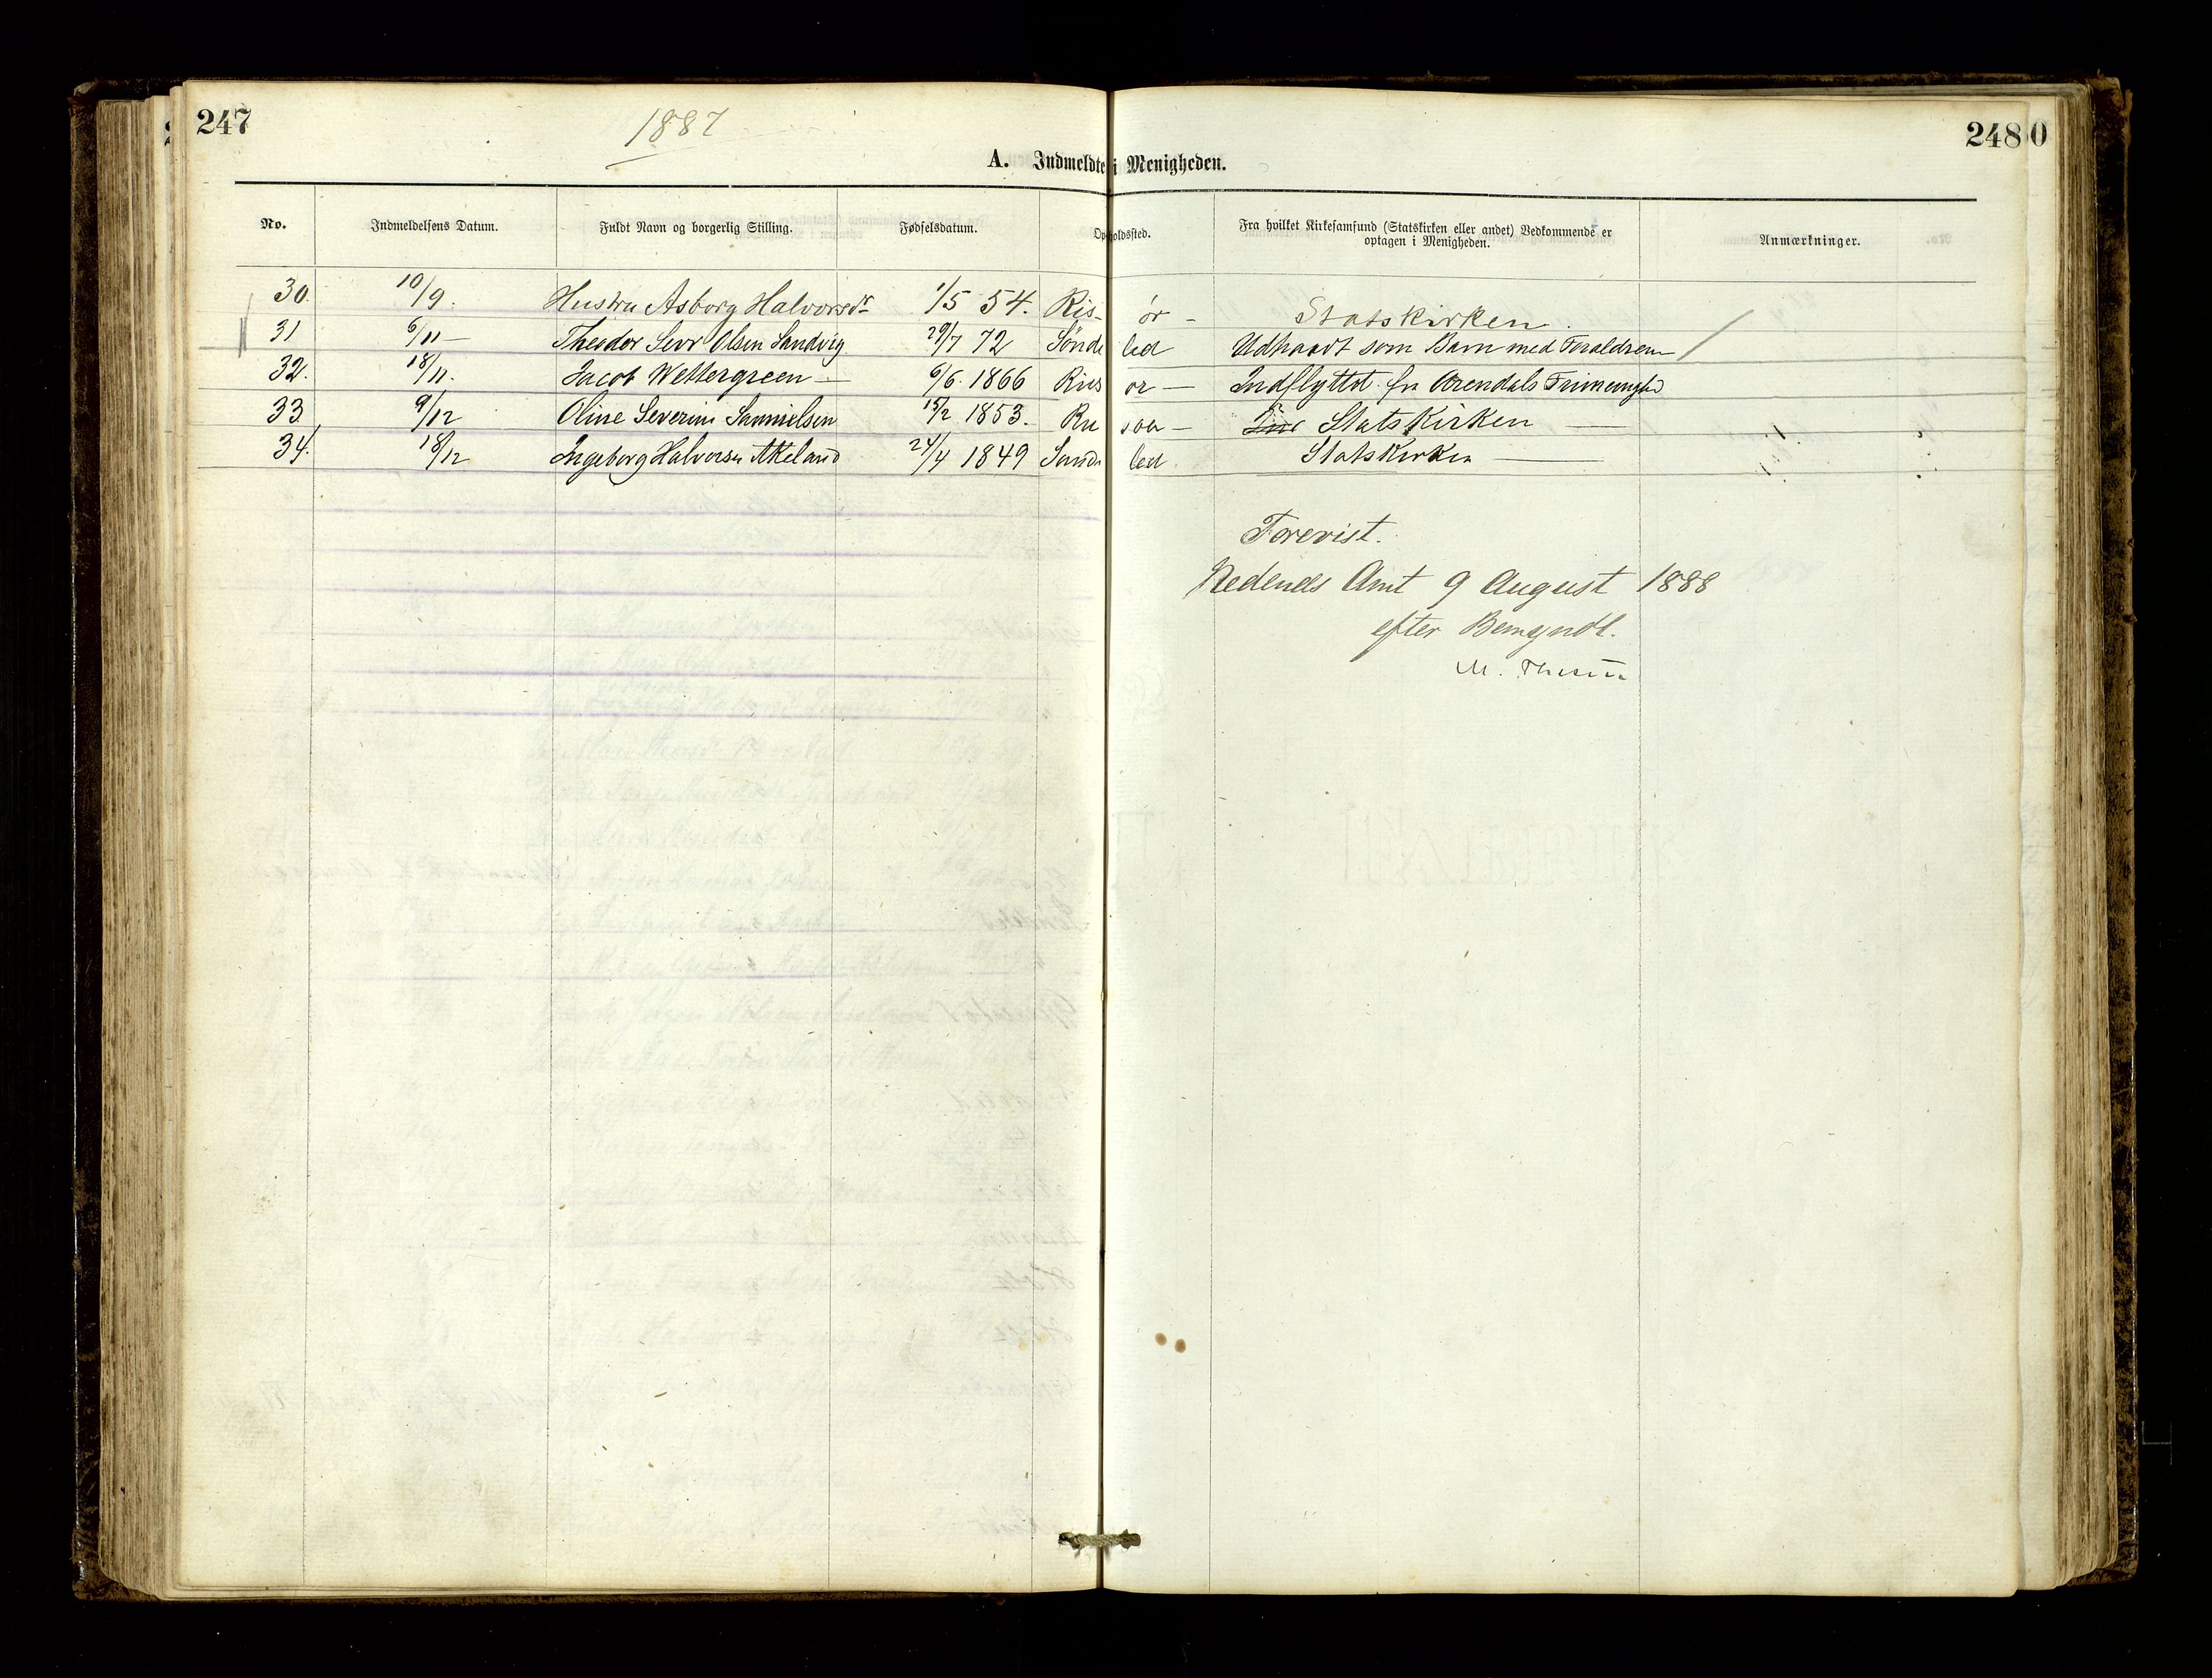 247
1887
2480
A. Indmeldte i Menigheden.
No. Indmeldelsens Datum. Fuldt Navn og borgerlig Stilling. Fødselsdatum. Opholdssted. Fra hvilket Kirkesamfund (Statskirken eller andet) Vedkommende er Anmærkninger.
optagen i Menigheden.
30. 10/9. Hustru Asborg Halvorsdr 1/5 54. Ris-ör - Statskirken.
31 6/11 - Theodor Sevr Olsen Sandvig 29/7 72 Sönde led Udtraadt som Barn med Foraldrene
32. 18/11. Jacob Wettergreen - 6/6. 1866 Riis or - Indflyttet fra Arendals Frimenighed
33 9/12 Oline Severine Samuelsen 15/2 1853. soa - Statskirken
34. 18/12 Ingeborg Halvorsen Akeland 24/4 1849 led Statskirken
Forevist.
Nedenes Amt 9 August 1888
efter Bemyndl.
M.